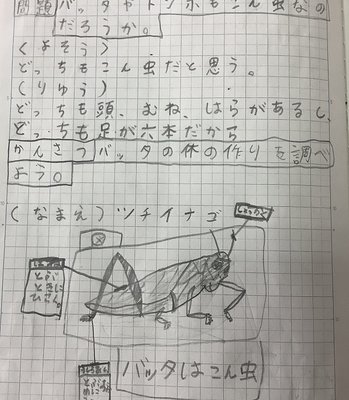 問題 バッタやトンボもこん虫なの
だろうか。
(よそう)
どっちもこん虫だと思う。
(りゆう)
どっちも頭、むね、はらがあるし、
どっちも足が六本だから
かんさつ バッタの体の作りを調べ
よう。
(なまえ) ツチイナゴ
しょっかく
とぶ
ときに
バッタはこん虫